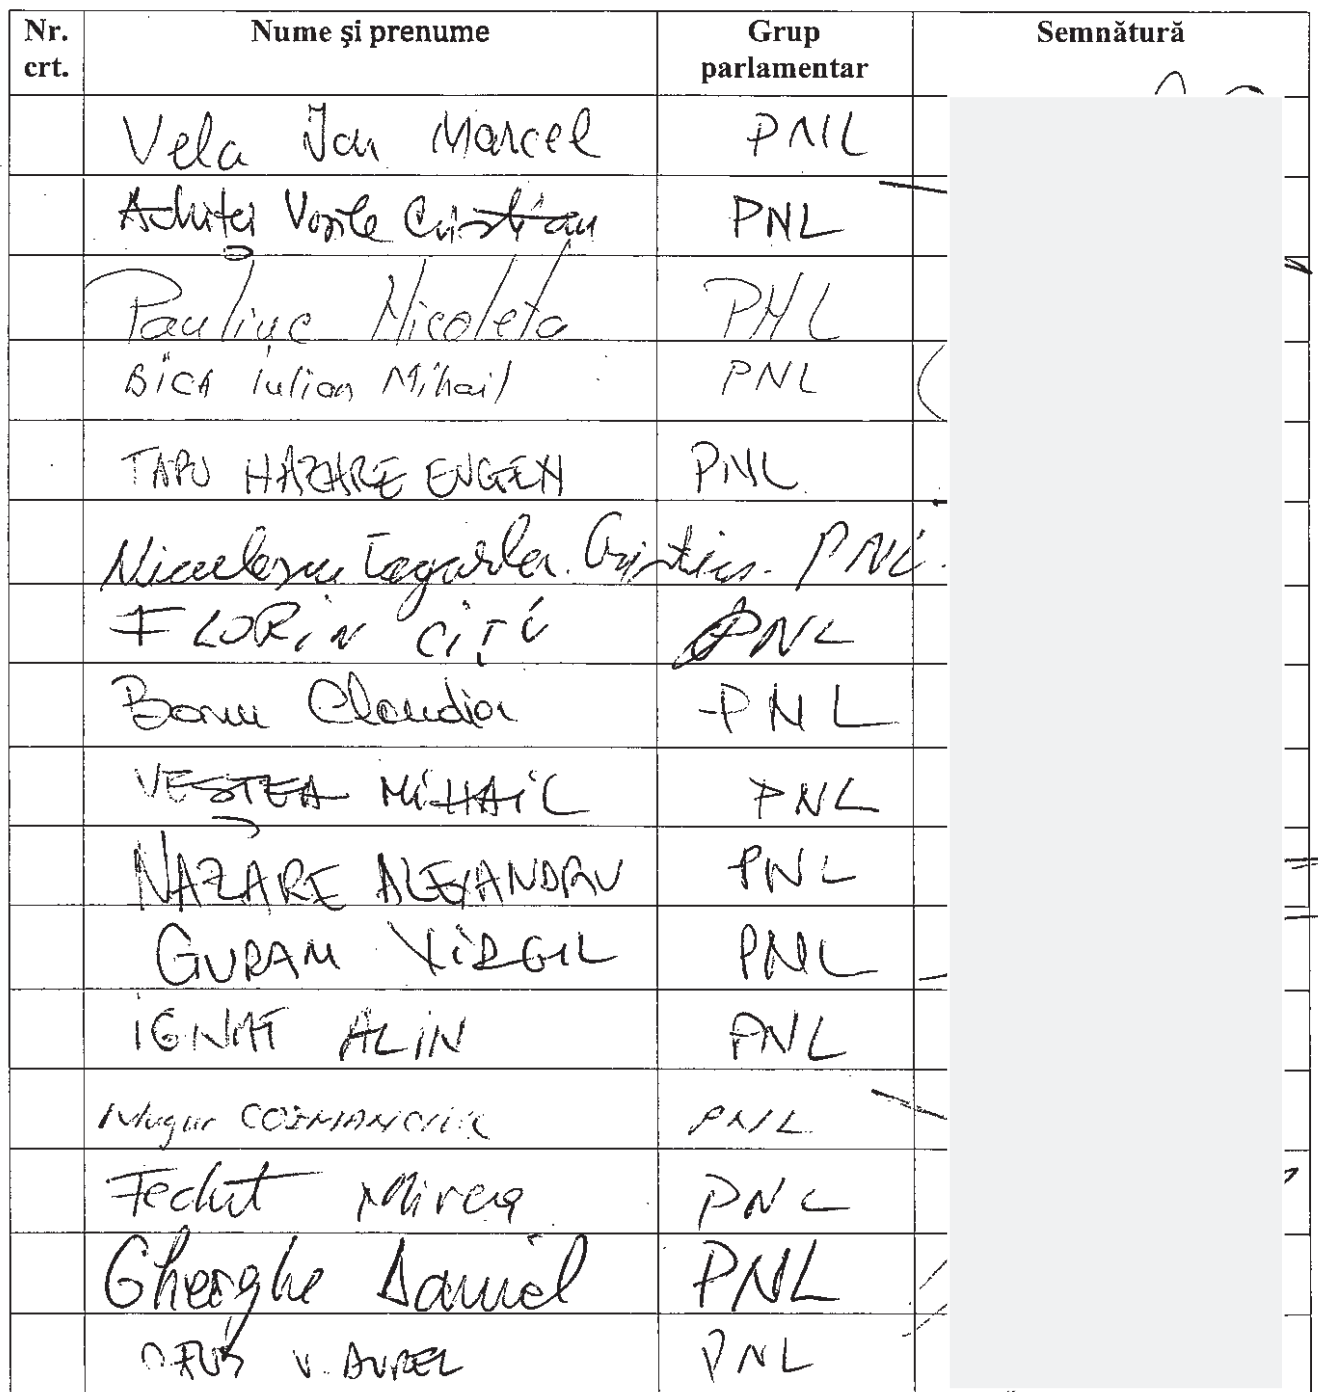 Nr. crt. Nume și prenume Grup parlamentar Semnătură
Vela Ion Marcel PNL
Achiței Vasile Cristian PNL
Pauliuc Nicoleta PNL
BÎCA Iulian Mihail PNL
TAPU NAZARE EUGEN PNL
Niculescu Țâgârlaș Cristian PNL
FLORIN CÎȚU PNL
Boghicevici Claudia PNL
VEȘTEA MIHAIL PNL
NAZARE ALEXANDRU PNL
GURAN VIRGIL PNL
IGNAT ALIN PNL
Mugur COZMANCIUC PNL
Fechet Mircea PNL
Gheorghe Daniel PNL
V. AUREL PNL